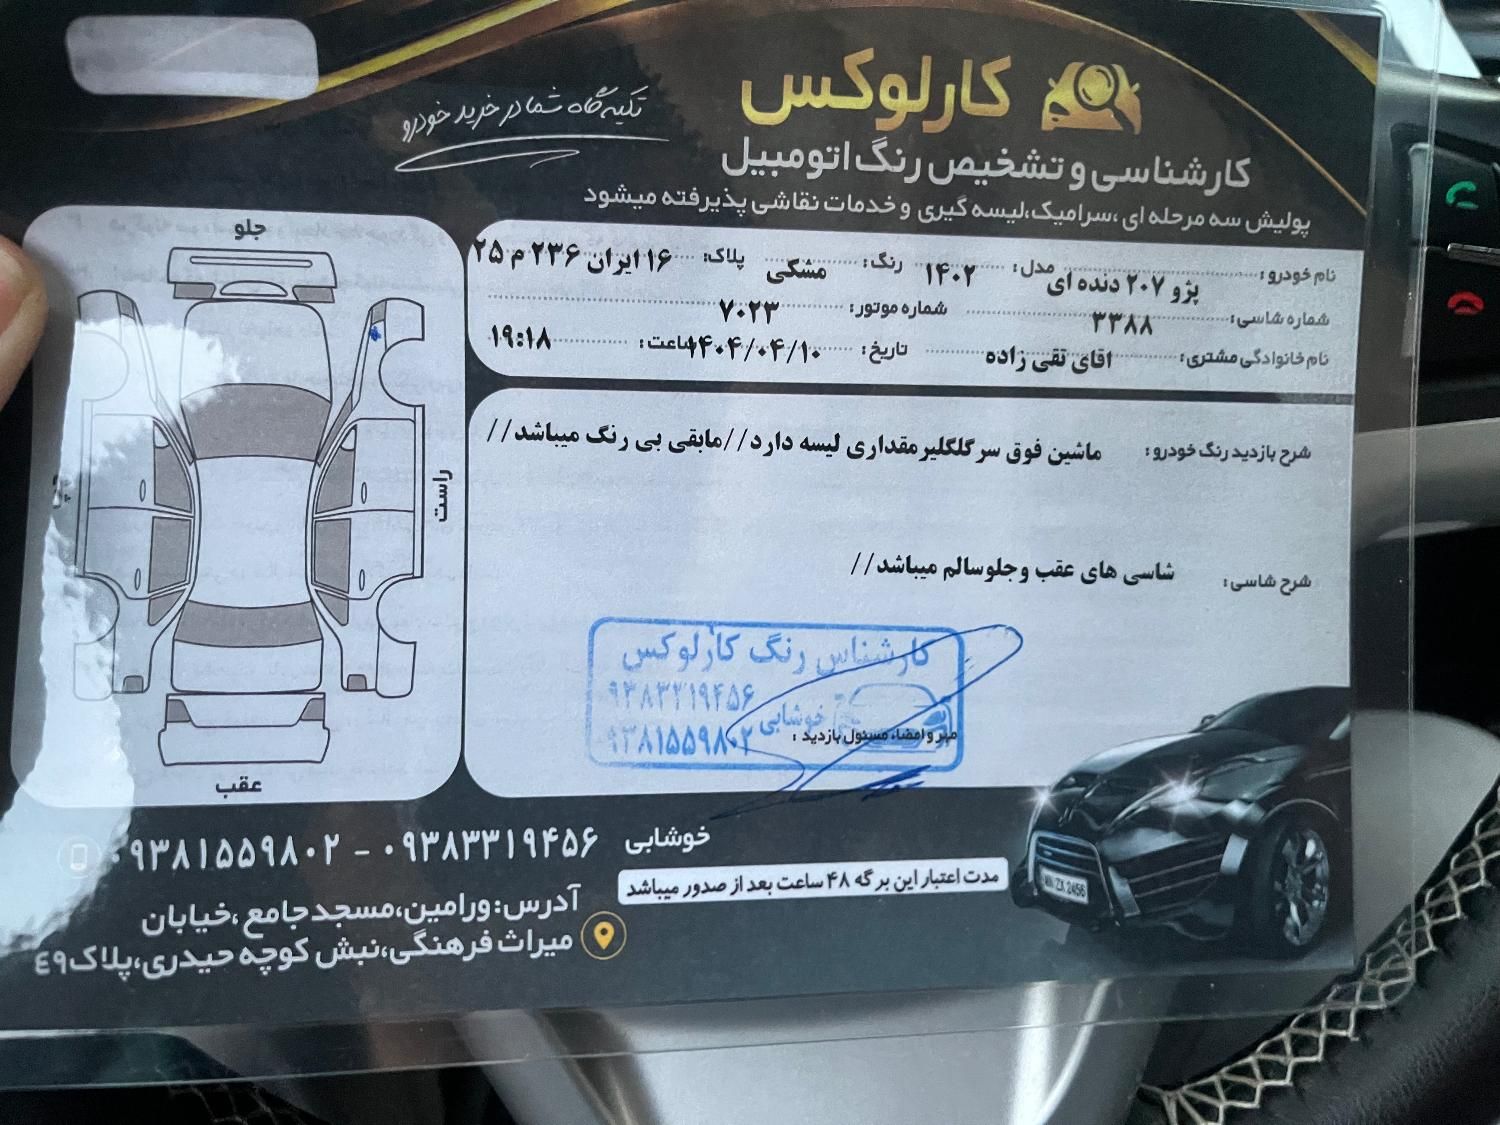 کارلوکس
تکیه‌گاه شما در خرید خودرو
کارشناسی و تشخیص رنگ اتومبیل
پولیش سه مرحله ای ،سرامیک،لیسه گیری و خدمات نقاشی پذیرفته میشود
نام خودرو : پژو ۲۰۷ دنده ای مدل : ۱۴۰۲ رنگ : مشکی پلاک: ۱۶ ایران ۲۳۶ م ۲۵
شماره شاسی : ۳۳۸۸ شماره موتور: ۷۰۲۳
نام خانوادگی مشتری : اقای تقی زاده تاریخ : ۱۴۰۴/۰۴/۱۰ ساعت : ۱۹:۱۸
جلو
راست
عقب
شرح بازدید رنگ خودرو : ماشین فوق سر گلگیر مقداری لیسه دارد//مابقی بی رنگ میباشد//
شرح شاسی : شاسی های عقب و جلو سالم میباشد//
کارشناس رنگ کارلوکس
۰۹۳۸۳۳۱۹۴۵۶
خوشابی
۰۹۳۸۱۵۵۹۸۰۲
مهر و امضاء مسئول بازدید :
خوشابی ۰۹۳۸۳۳۱۹۴۵۶ - ۰۹۳۸۱۵۵۹۸۰۲
مدت اعتبار این برگه ۴۸ ساعت بعد از صدور میباشد
آدرس: ورامین،مسجد جامع ،خیابان
میراث فرهنگی،نبش کوچه حیدری،پلاک ۴۹